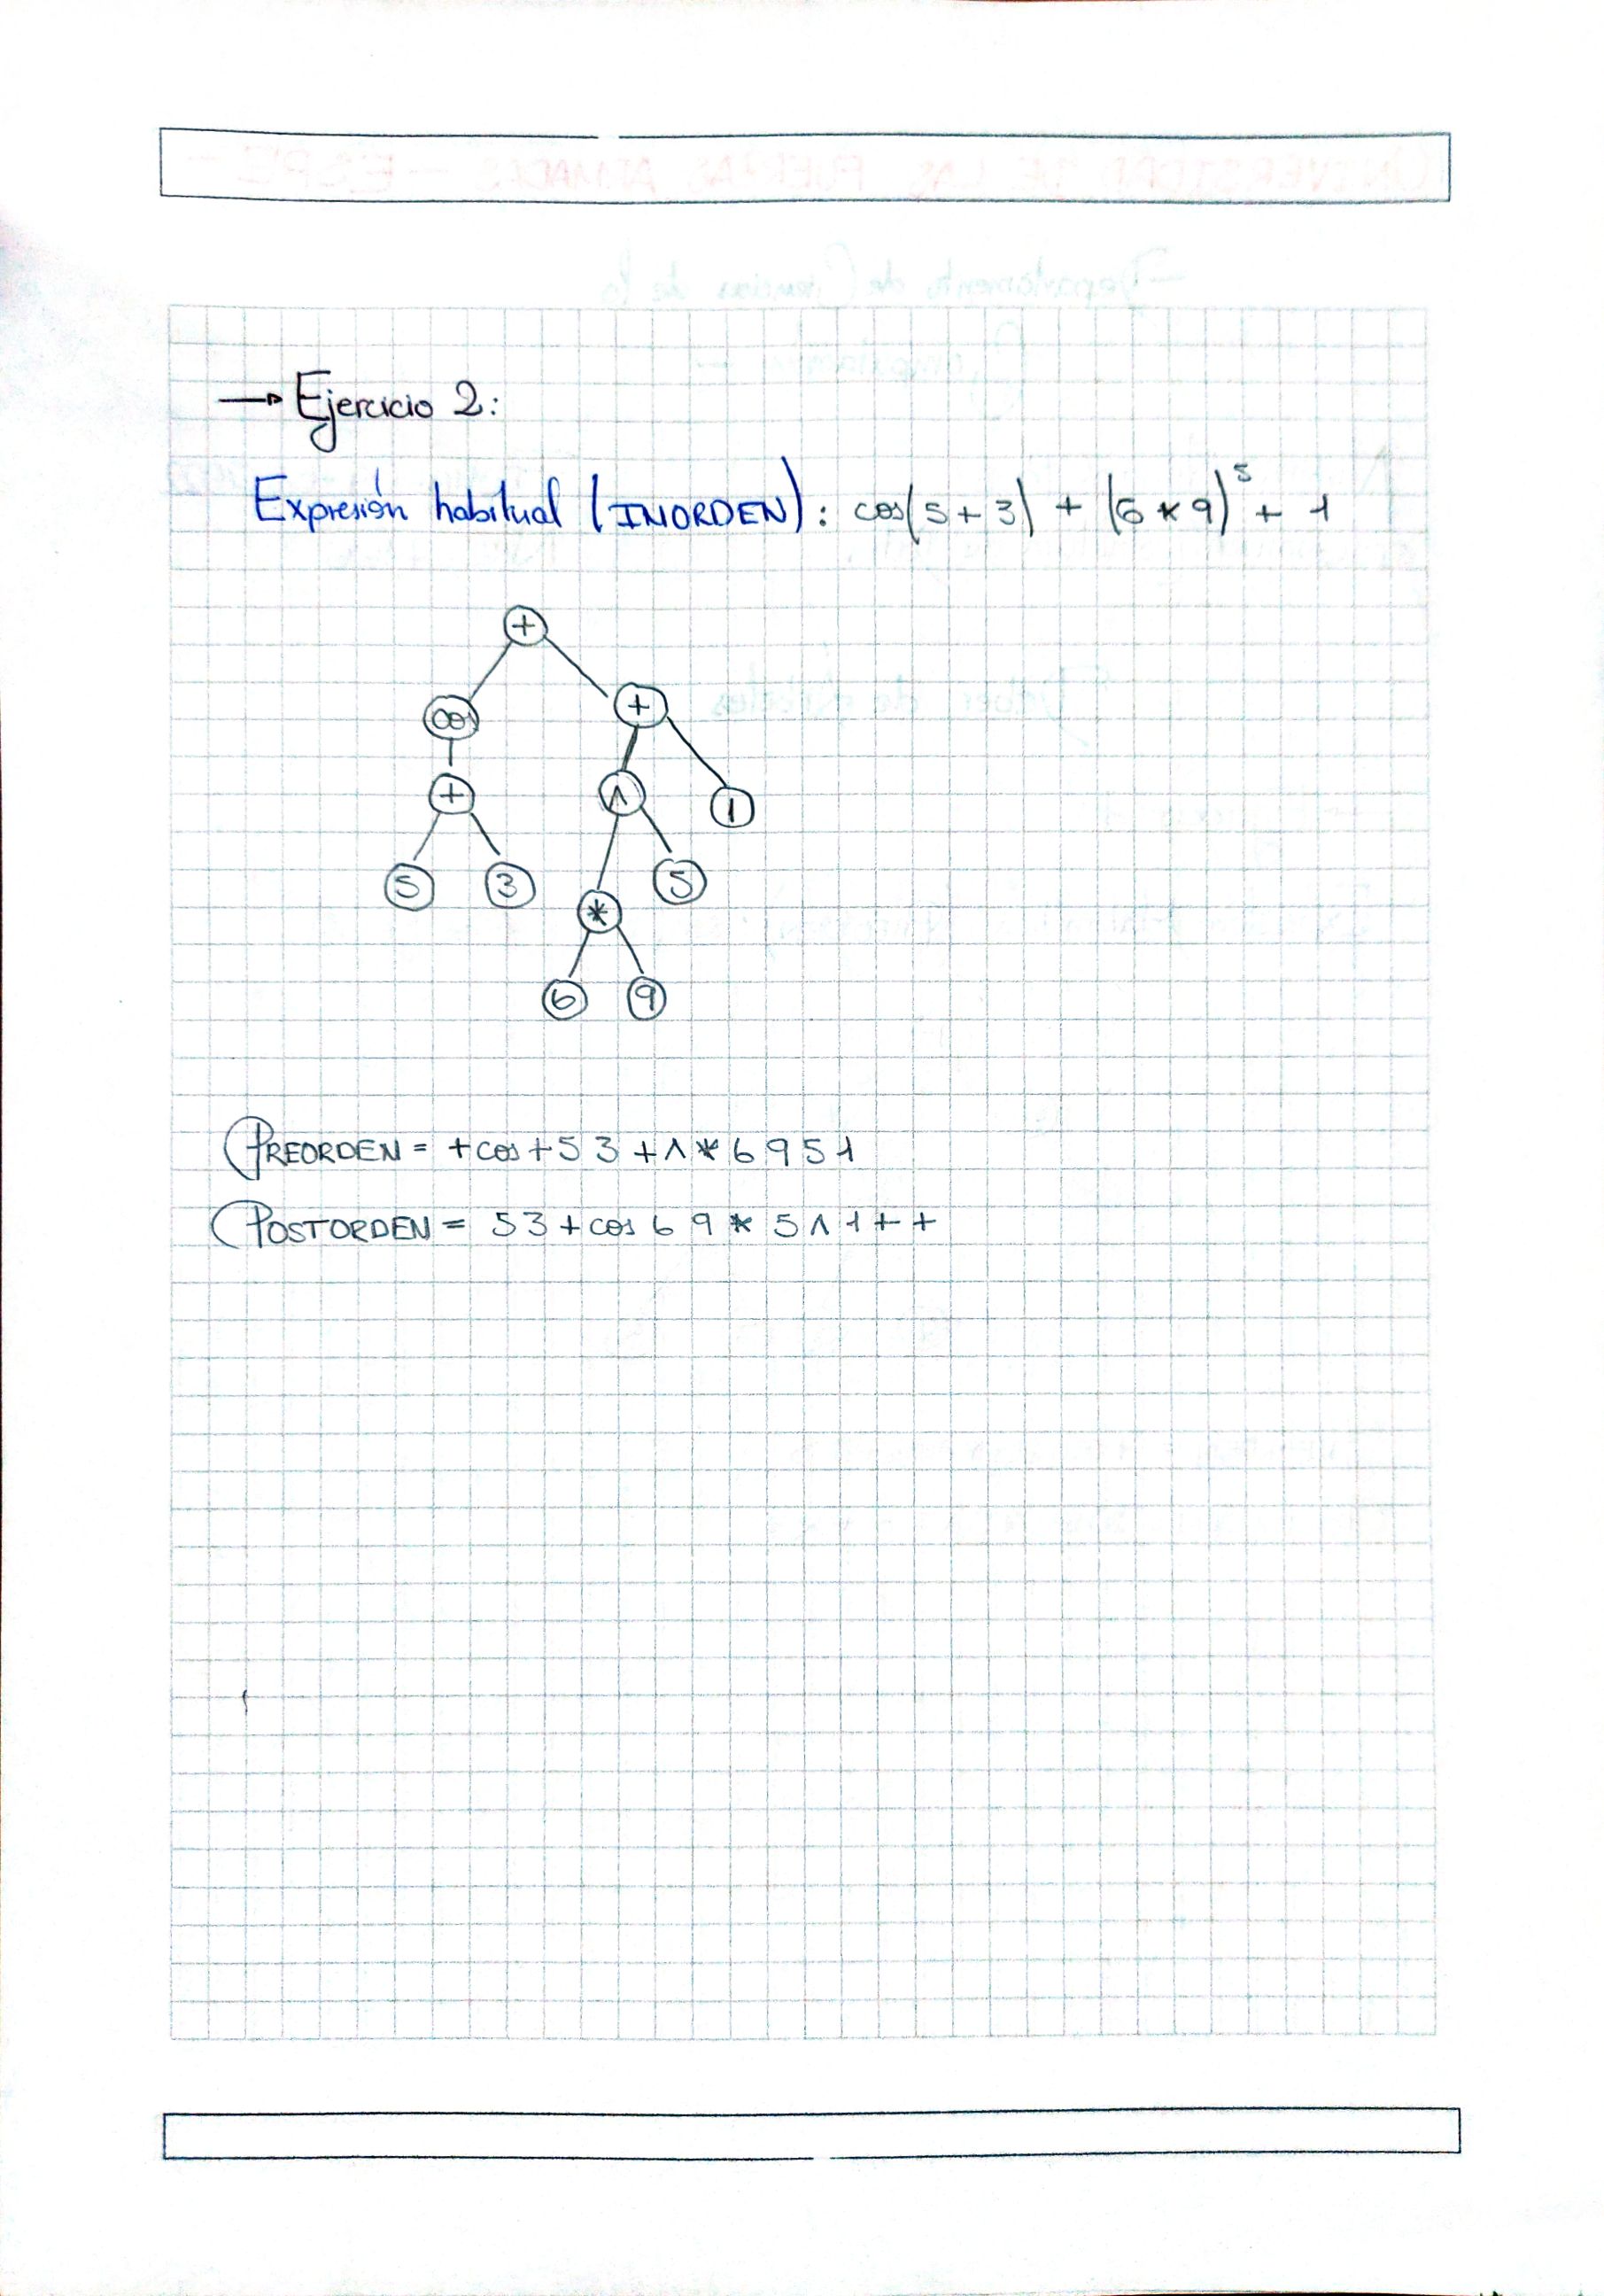 → Ejercicio 2:
Expresión habitual (INORDEN): cos(5+3) + (6*9)⁵ + 1
+
cos +
+ ^ 1
5 3 5
*
6 9
PREORDEN = +cos+53+^*6951
POSTORDEN = 53+cos69*5^1++